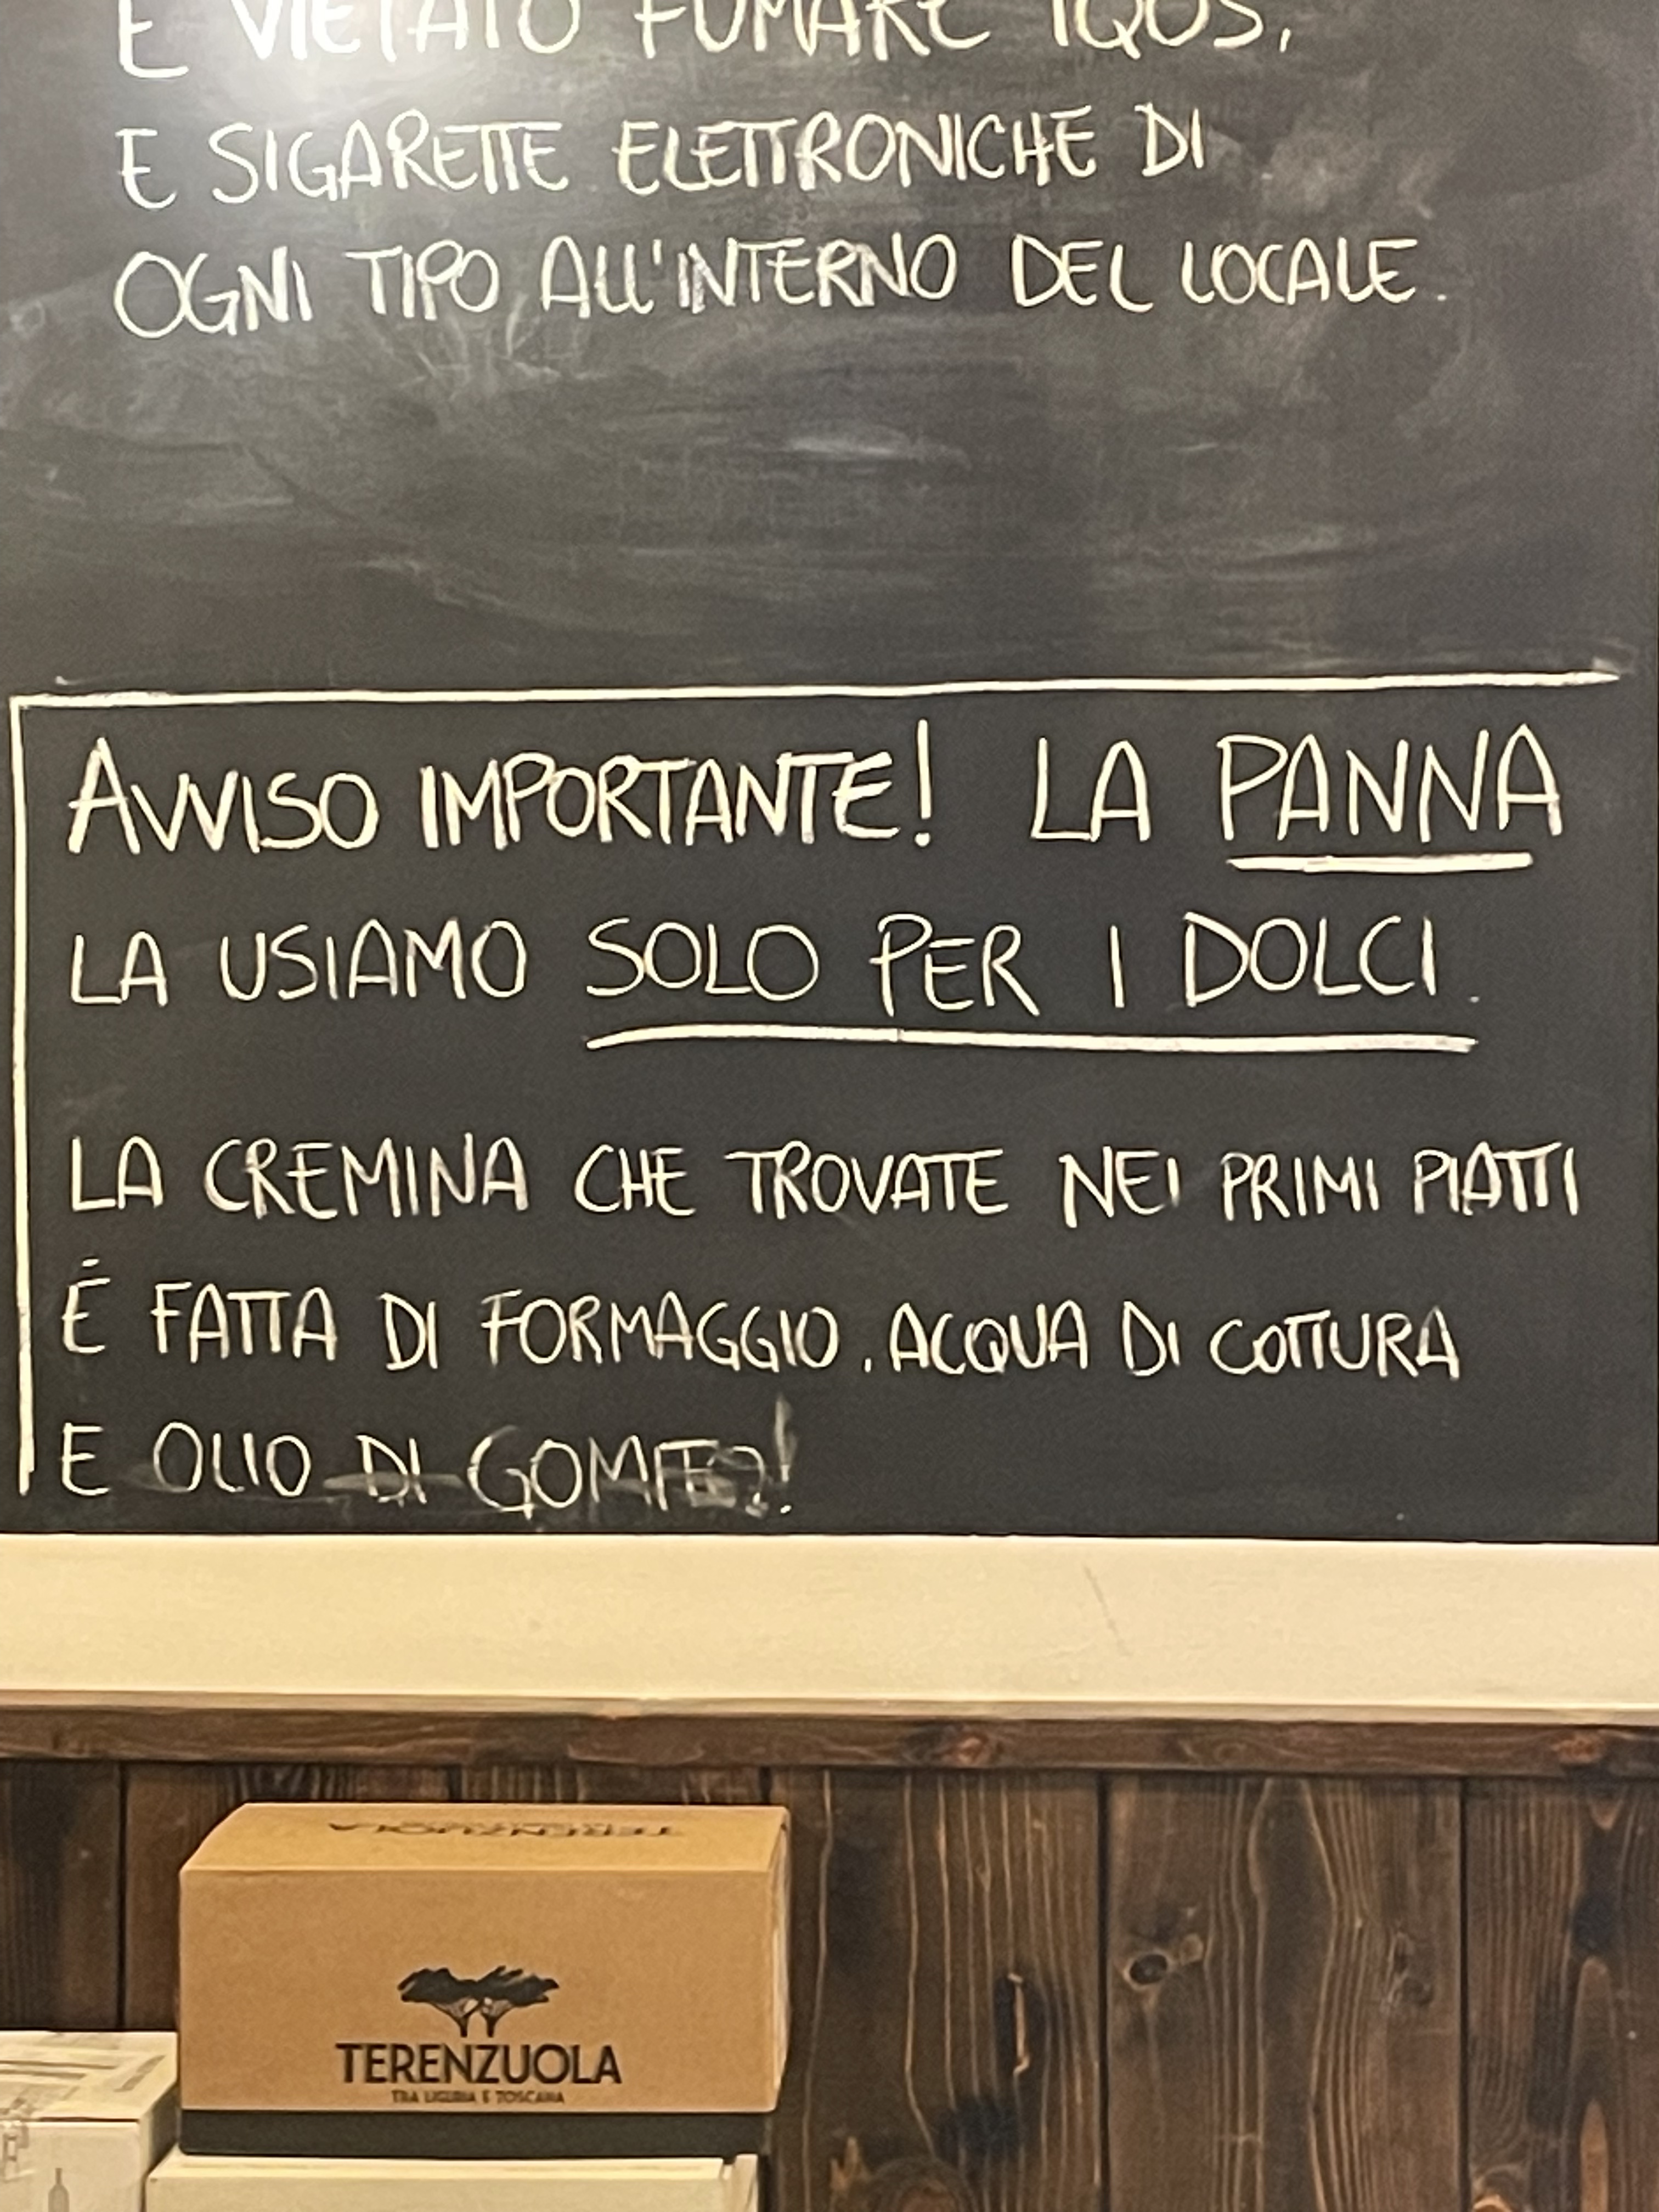 È VIETATO FUMARE IQOS,
E SIGARETTE ELETTRONICHE DI
OGNI TIPO ALL'INTERNO DEL LOCALE.
AVVISO IMPORTANTE! LA PANNA
LA USIAMO SOLO PER I DOLCI.
LA CREMINA CHE TROVATE NEI PRIMI PIATTI
É FATTA DI FORMAGGIO, ACQUA DI COTTURA
E OLIO DI GOMITO!
TERENZUOLA
TERENZUOLA
TRA LIGURIA E TOSCANA